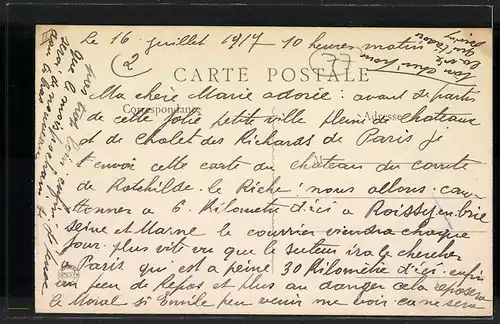 Le 16 juillet 1917 10 heures matin
(2
77
CARTE POSTALE
Correspondance
Adresse
Ma cheri Marie adorée: avant de partir
de cette jolie petit ville plein de chateaux
et de chalet des Richards de Paris je
t'envoi cette carte du chateau du comte
de Rotchilde. le Riche! nous allons can-
tonner a 6. Kilometre d'ici a Roissy-en-brie
seine et Marne le courrier viendra chaque
Jour. plus vite vu que le secteur ira le chercher
a Paris qui est a peine 30 Kilomètre d'ici. enfin
un peu de Repos et plus au danger cela reposera
le Moral si Emile peu venir me voir ca me sera